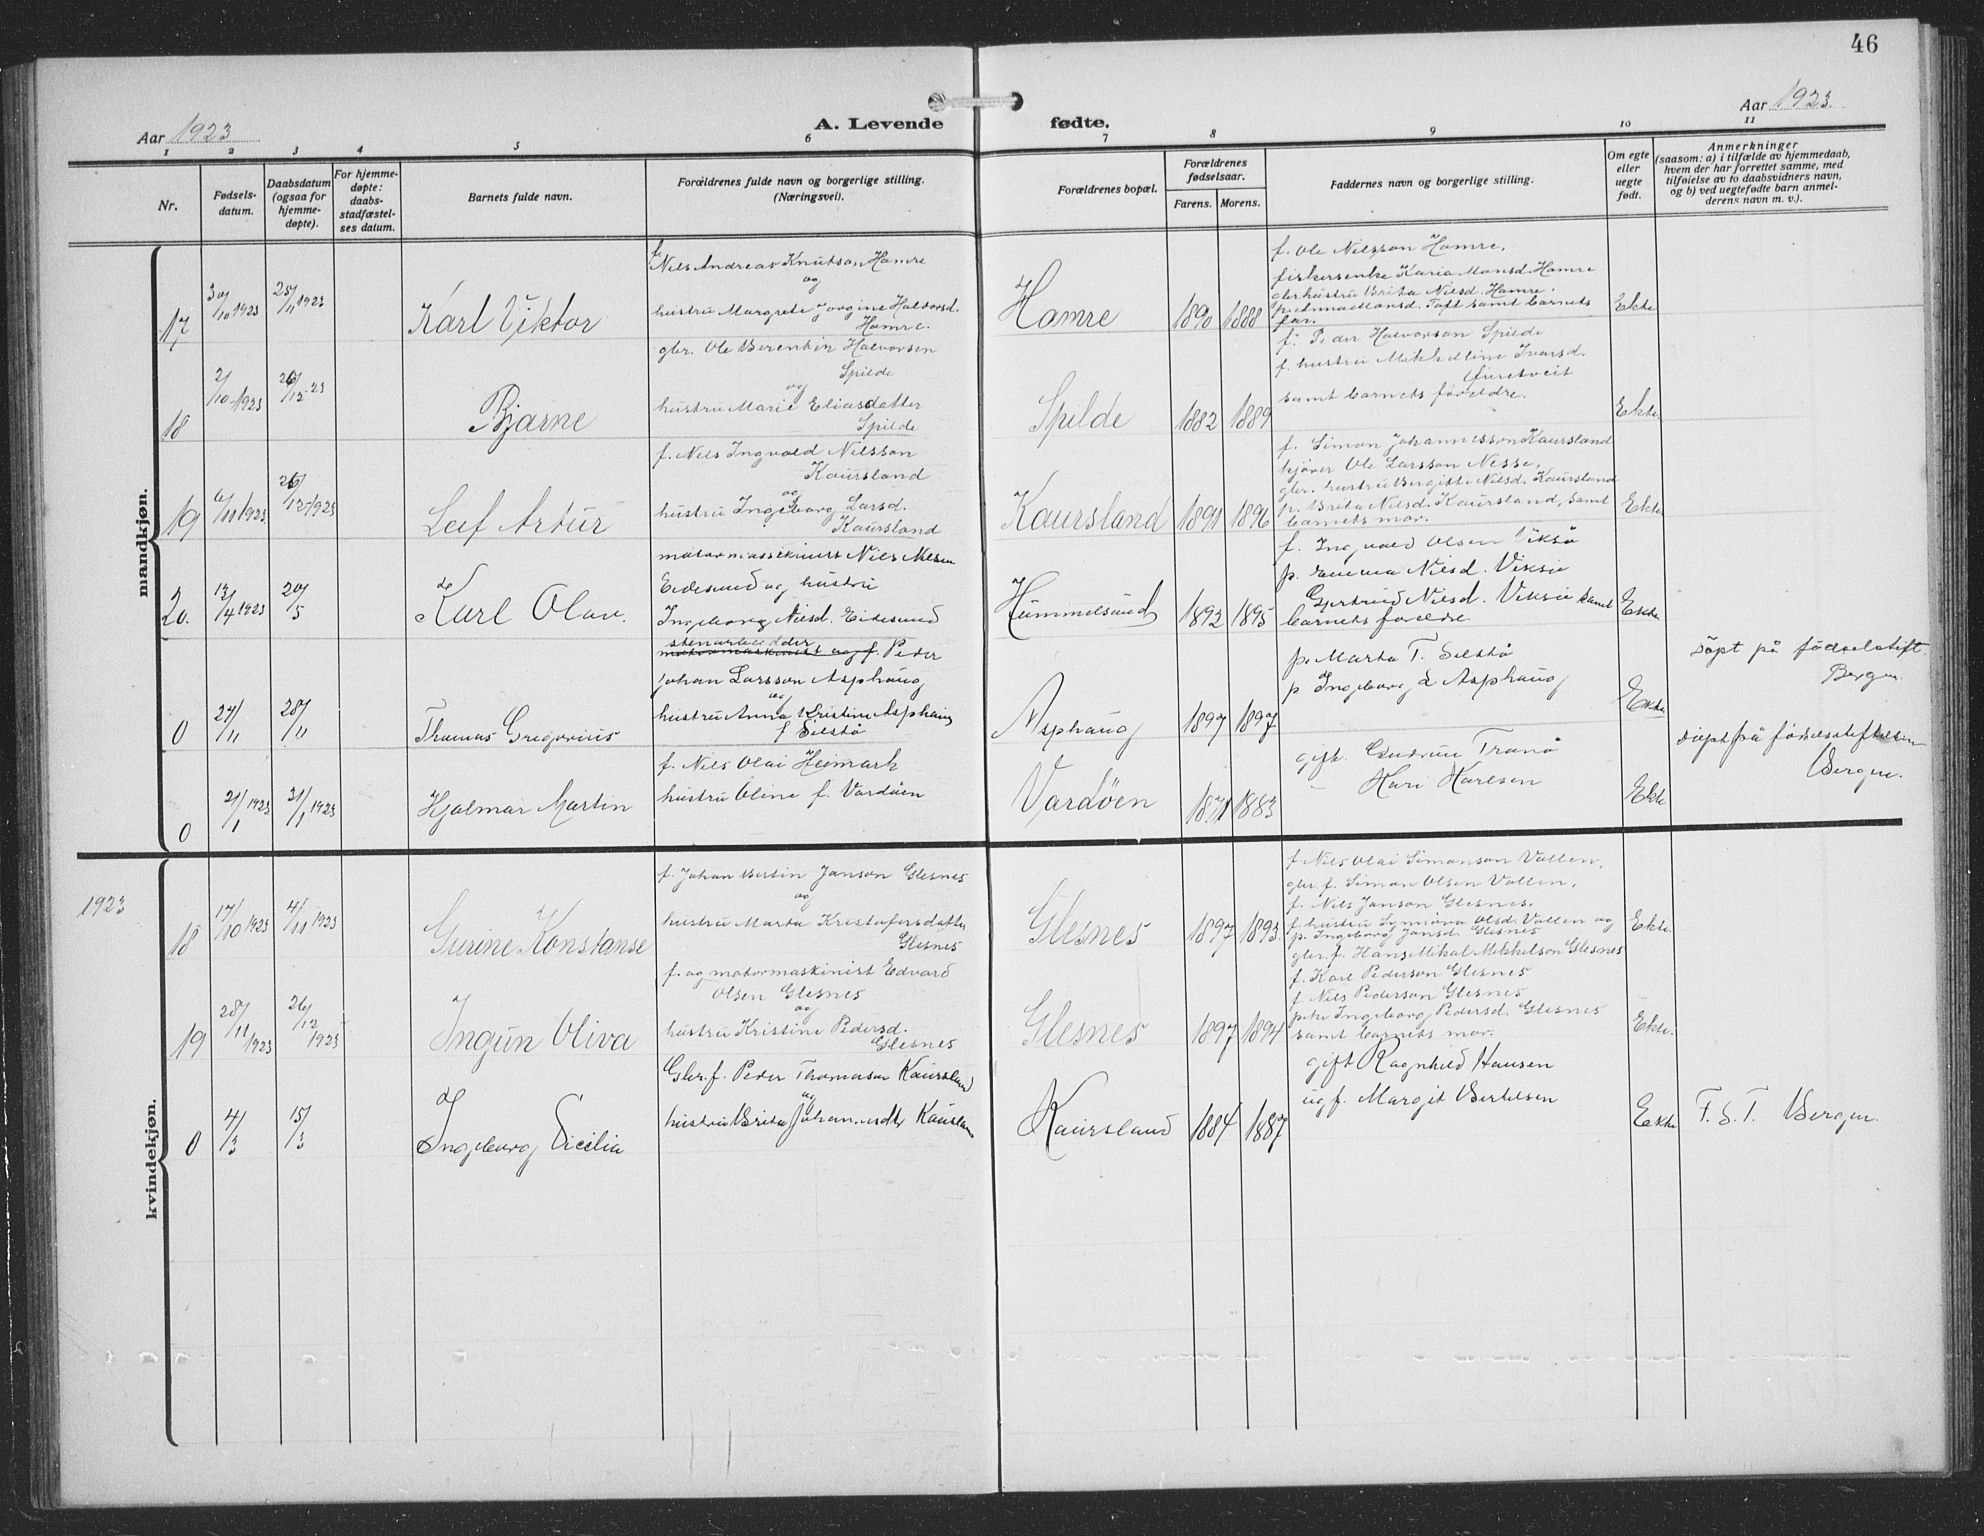 46
Aar 1923
A. Levende fødte.
Aar 1923.
1 2 3 4 5 6 7 8 9 10 11
Nr.
Fødsels-
datum.
Daabsdatum
(ogsaa for
hjemme-
døpte).
For hjemme-
døpte:
daabs-
stadfæstel-
ses datum.
Barnets fulde navn.
Forældrenes fulde navn og borgerlige stilling.
(Næringsvei).
Forældrenes bopæl.
Forældrenes
fødselsaar.
Farens. Morens.
Faddernes navn og borgerlige stilling.
Om egte
eller
uegte
født.
Anmerkninger
(saasom: a) i tilfælde av hjemmedaab,
hvem der har forrettet samme, med
tilføielse av to daabsvidners navn,
og b) ved uegtefødte barn anmel-
derens navn m. v.).
mandkjøn.
17
30/10 1923
25/11 1923
Karl Viktor
f. Nils Andreas Knutson Hamre
og
hustru Margrete Jorgine Halvorsd.
Hamre.
Hamre
1890 1888
f. Ole Nilsson Hamre,
fiskerenke Karia Monsd. Hamre
gbr. hustru Brita Nilsd. Hamre,
Toft samt barnets
far.
Ekte
18
2/10 1923
26/12 23
Bjarne
gbr. Ole Berentin Halvorsen
Spilde
og
hustru Marie Eliasdatter
Spilde
Spilde
1882 1889
f. Peder Halvorson Spilde
f. hustru Mikkeline Ivarsd.
samt barnets foreldre.
Ekte
19
6/11 1923
26/12 1923
Leif Artur
f. Nils Ingvald Nilsson
Kaursland
og
hustru Ingeborg Larsd.
Kaursland
Kaursland
1891 1896
f. Simon Johannesson Kaursland
kjøver Ole Larsson Nesse,
gbr. hustru Bergitte Nilsd. Kaursland
p. Brita Nilsd. Kaursland, samt
barnets mor.
Ekte
20.
13/4 1923
20/5
Karl Olav.
motormaskinist Nils Nilsen
Eidesund og hustru
Ingeborg Nilsd. Eidesund
Hummelsund
1892 1895
f. Ingvald Olsen Viksø
p. Emma Nilsd. Viksø
Gjertrud Nilsd. Viksø samt
barnets foreldre.
Ekte
0
24/11
28/11
Thomas Gregorius
stenarbeidder
motormaskinist og f. Peder
Johan Larsson Asphaug
og
hustru Anna Kristine Asphaug
f Selstø
Asphaug
1897 1897
p. Marta T. Selstø
p Ingeborg L Asphaug
Ekte
døpt på fødselstift.
Bergen.
0
21/1 1923
31/1 1923
Hjalmar Martin
f. Nils Olai Heimark
hustru Oline f. Vardøen
Vardøen
1871 1883
gift. Gudrun Tranø
" Kari Karlsen
Ekte
døpt på fødselsstiftelsen
Bergen.
kvindekjøn.
1923
18
17/10 1923
4/11 1923
Gurine Konstanse
f. Johan Bertin Janson Glesnes
og
hustru Marta Kristofersdatter
Glesnes
Glesnes
1897 1893.
f. Nils Olai Simonson Vallen,
gbr. f. Simon Olsen Vallen,
f. Nils Janson Glesnes.
f. hustru Synnöva Olsd. Vallen og
p. Ingeborg Jansd. Glesnes
Ekte.
19
28/11 1923
26/12 1923
Ingun Oliva
f. og motormaskinist Edvard
Olsen Glesnes
og
hustru Kristine Pedersd.
Glesnes
Glesnes
1897 1894
gbr. f. Hans Mikal Mikkelson Glesnes
f. Karl Pederson Glesnes
f. Nils Pederson Glesnes
pike Ingeborg Pedersd. Glesnes
samt barnets mor.
Ekte.
0
4/3
15/3
Ingeborg Cicilia
Gbr. f. Peder Thomasen Kaursland
og
hustru Brita Kausland
Kaursland
1884 1887
gift Ragnhild Hansen
ug f. Margit Bertelsen
Ekte
F. S. T. Bergen.